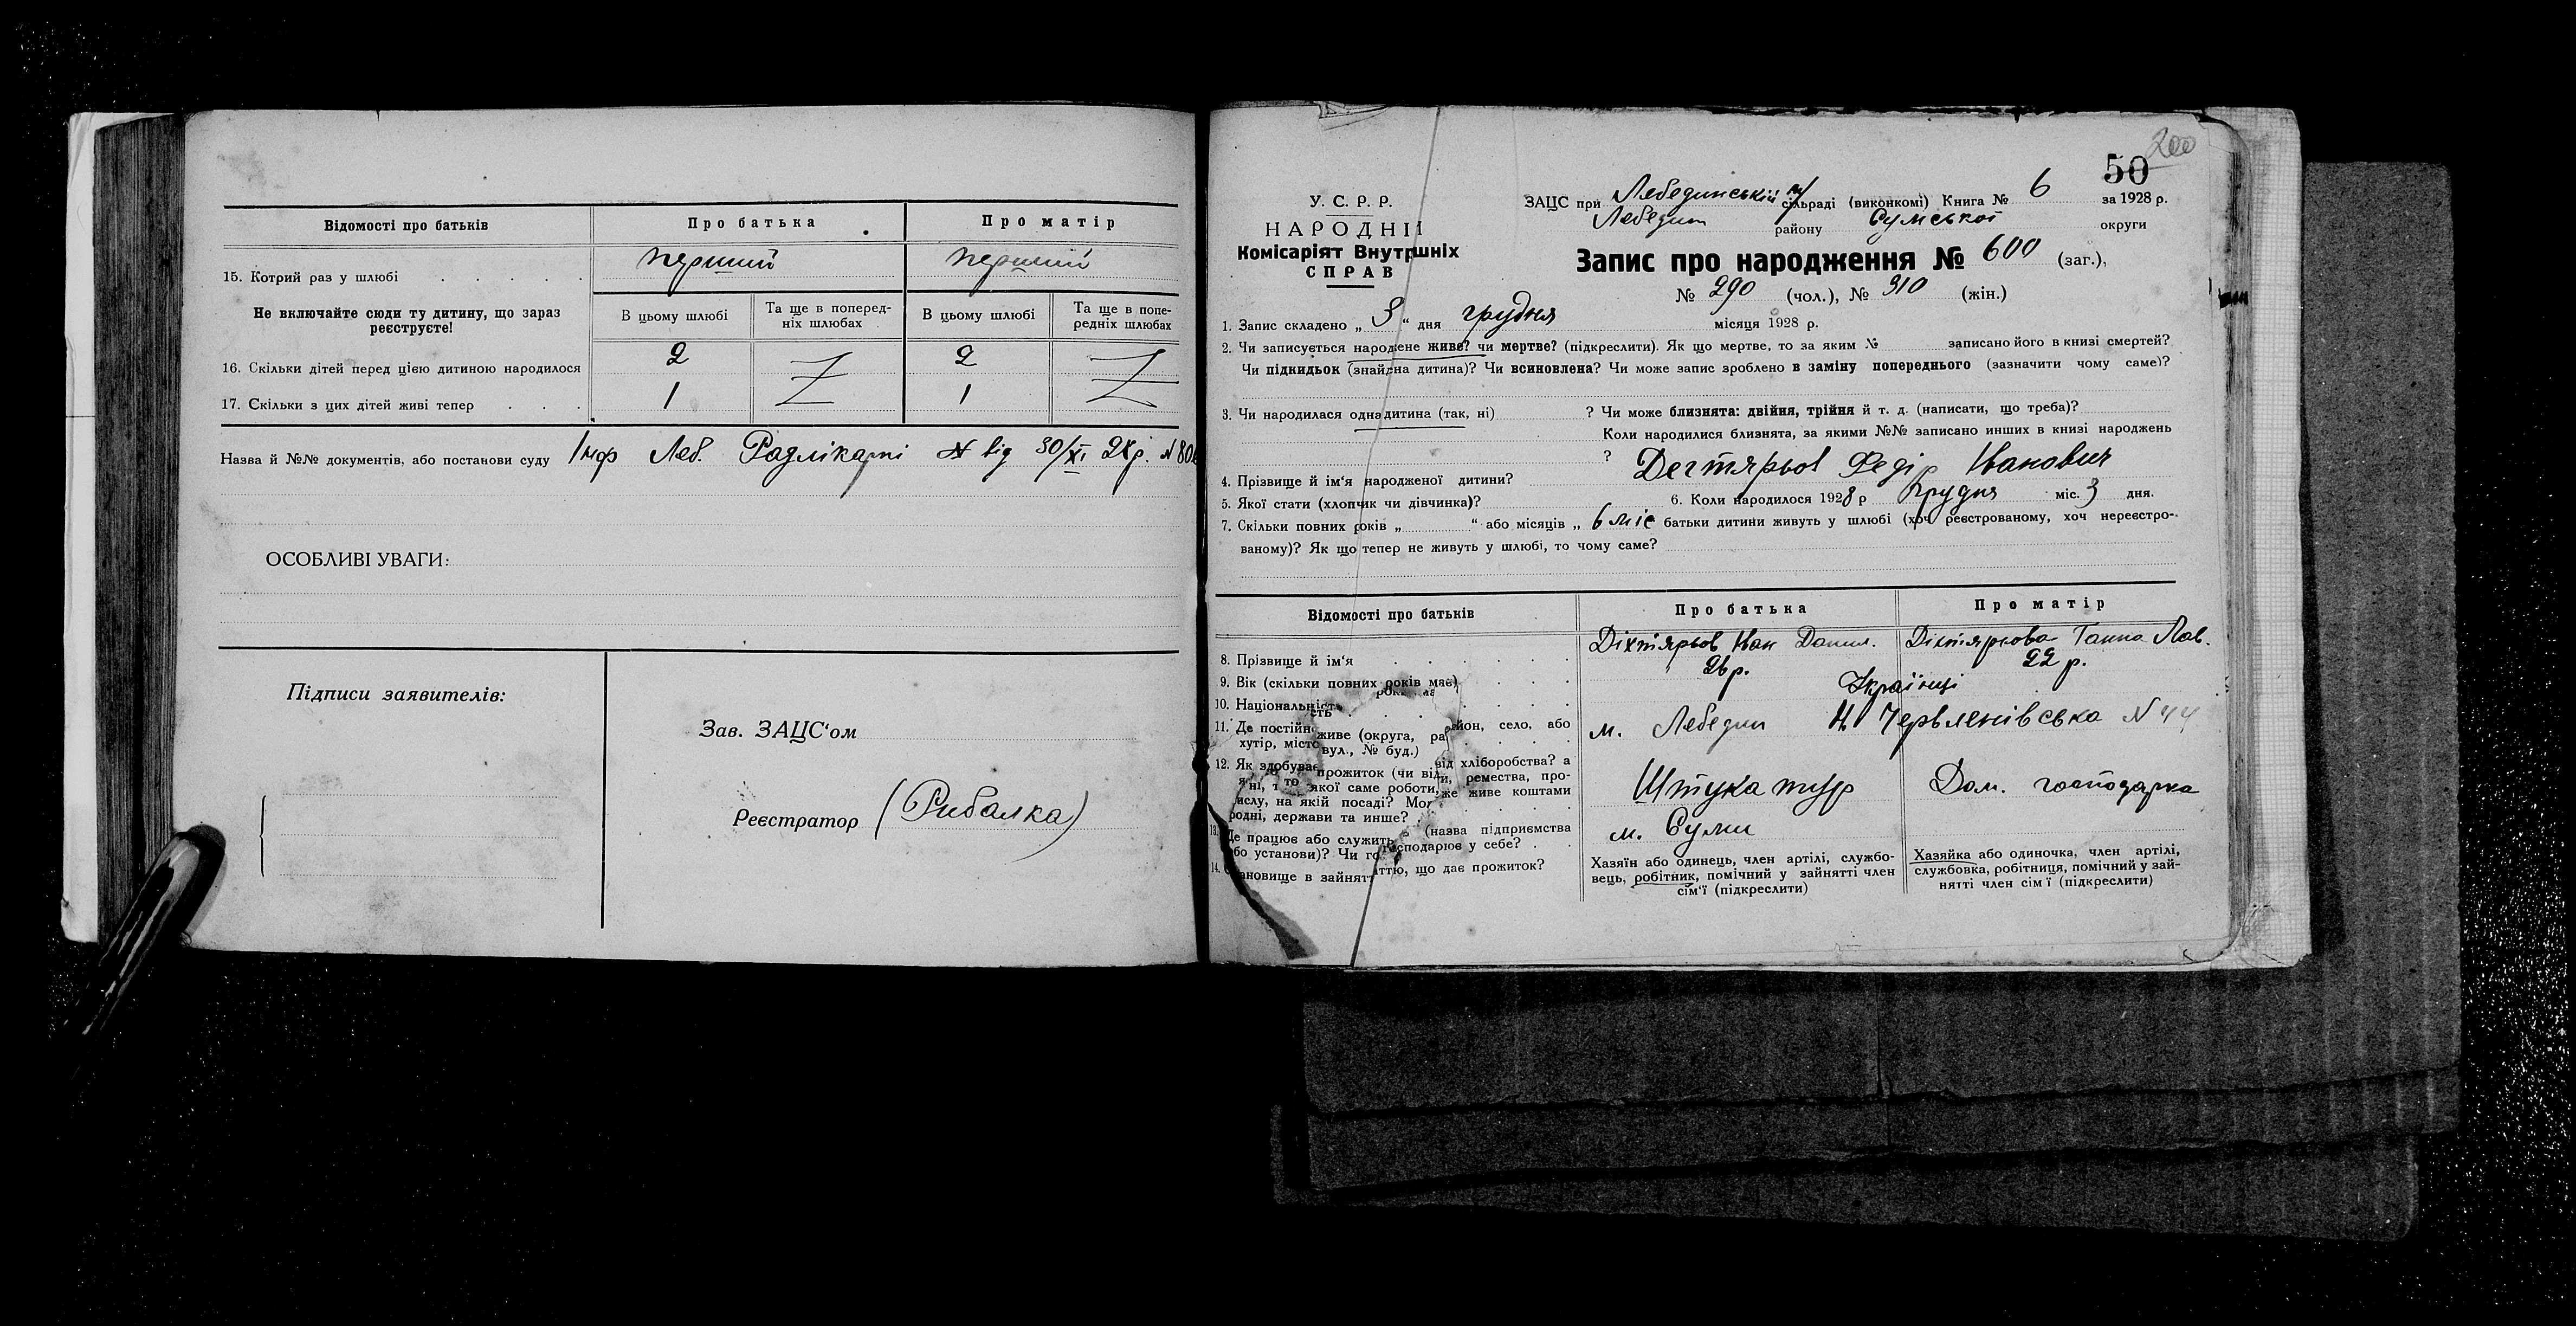 Відомості про батьків
Про батька
Про матір
15. Котрий раз у шлюбі
перший
перший
Не включайте сюди ту дитину, що зараз реєструєте!
В цьому шлюбі
Та ще в попередніх шлюбах
В цьому шлюбі
Та ще в попередніх шлюбах
16. Скільки дітей перед цією дитиною народилося
2
2
17. Скільки з цих дітей живі тепер
1
1
Назва й №№ документів, або постанови суду Інф Леб. Радлікарні від 30/XI 28р. №
ОСОБЛИВІ УВАГИ:
Підписи заявителів:
Зав. ЗАЦС'ом
Реєстратор (Рибалка)
200
50
У. С. Р. Р.
НАРОДНІЙ
Комісаріят Внутрішніх
СПРАВ
ЗАЦС при Лебединській м/ сільраді (виконкомі) Книга № 6 за 1928 р.
Лебедин району Сумської округи
Запис про народження № 600 (заг.),
№ 290 (чол.), № 310 (жін.)
1. Запис складено „ 3 “ дня грудня місяця 1928 р.
2. Чи записується народжене живе? чи мертве? (підкреслити). Як що мертве, то за яким № записано його в книзі смертей?
Чи підкидьок (знайдена дитина)? Чи всиновлена? Чи може запис зроблено в заміну попереднього (зазначити чому саме)?
3. Чи народилася одна дитина (так, ні) ? Чи може близнята: двійня, трійня й т. д. (написати, що треба)?
Коли народилися близнята, за якими №№ записано инших в книзі народжень
?
4. Прізвище й ім'я народженої дитини? Дегтярьов Федір Іванович
5. Якої стати (хлопчик чи дівчинка)? 6. Коли народилося 1928 р грудня міс. 3 дня.
7. Скільки повних років „ “ або місяців „ 6 міс батьки дитини живуть у шлюбі (хоч реєстрованому, хоч нереєстро-
ваному)? Як що тепер не живуть у шлюбі, то чому саме?
Відомості про батьків
Про батька
Про матір
8. Прізвище й ім'я
Діхтярьов Іван Данил.
Діхтярьова Ганна Лав.
9. Вік (скільки повних років має)
26 р.
22 р.
10. Національність
Українці
11. Де постійно живе (округа, район, село, або
хутір, місто вул., № буд.)
м. Лебедин Червленівська № 44
12. Як здобуває прожиток (чи від хліборобства? а
якої саме роботи, ремества, про-
мислу, на якій посаді? живе коштами
родні, держави та инше?
Штукатур
Дом. господарка
13. Де працює або служить (назва підприємства
або установи)? Чи господарює у себе?
м. Суми
14. Становище в зайнятті, що дає прожиток?
Хазяїн або одинець, член артілі, службо-
вець, робітник, помічний у зайнятті член
сім'ї (підкреслити)
Хазяйка або одиночка, член артілі,
службовка, робітниця, помічний у зай-
нятті член сім'ї (підкреслити)